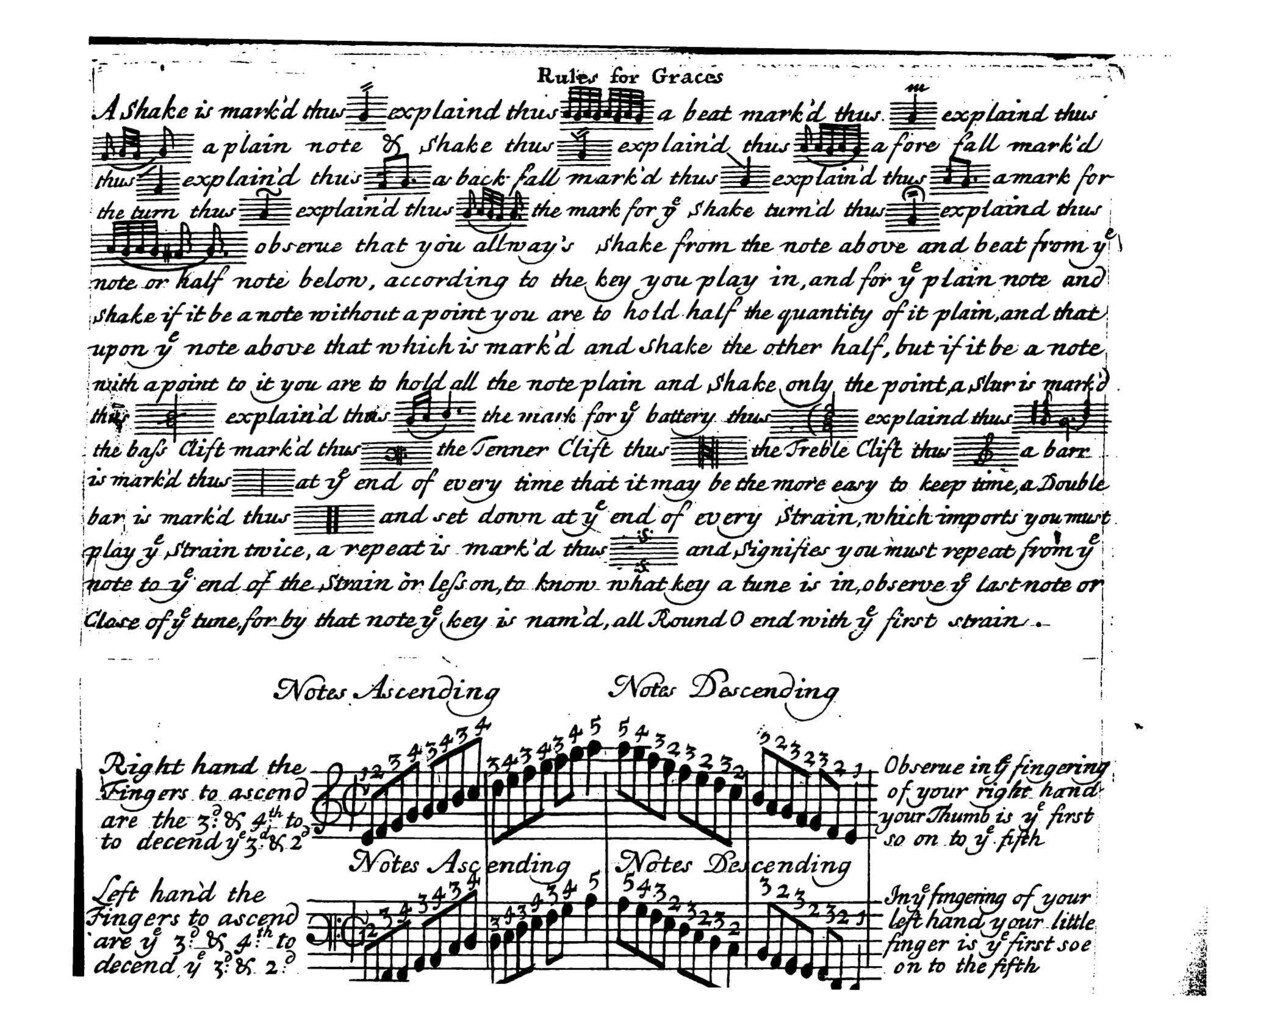 Rules for Graces
A Shake is mark'd thus explain'd thus a beat mark'd thus explaind thus
a plain note & shake thus explain'd thus a fore fall mark'd
thus explain'd thus a back fall mark'd thus explain'd thus a mark for
the turn thus explain'd thus the mark for yͤ Shake turn'd thus explaind thus
obserue that you allway's shake from the note aboue and beat from yͤ
note or half note below, according to the key you play in, and for yͤ plain note and
shake if it be a note without a point you are to hold half the quantity of it plain, and that
upon yͤ note aboue that which is mark'd and shake the other half, but if it be a note
with a point to it you are to hold all the note plain and shake only the point, a Slur is mark'd
thus explain'd thus the mark for yͤ battery thus explaind thus
the baſs Clift mark'd thus the Tenner Clift thus the Treble Clift thus a barr
is mark'd thus at yͤ end of euery time that it may be the more easy to keep time, a Double
bar is mark'd thus and set down at yͤ end of euery Strain, which imports you must
play yͤ Strain twice, a repeat is mark'd thus :S: :S: and Signifies you must repeat from yͤ
note to yͤ end of the Strain or leſson, to know what key a tune is in, obserue yͤ last note or
Close of yͤ tune, for by that note yͤ key is nam'd, all Round O end with yͤ first strain.
Notes Ascending Notes Descending
1 2 3 4 3 4 3 4 3 4 3 4 3 4 5 5 4 3 2 3 2 3 2 3 2 3 2 3 2 1
Right hand the
Fingers to ascend
are the 3ᵈ & 4ᵗʰ to
to decend yͤ 3ᵈ & 2ᵈ
Obserue in yͤ fingering
of your right hand
your Thumb is yͤ first
so on to yͤ fifth
Notes Ascending Notes Descending
1 2 3 4 3 4 3 4 3 4 3 4 3 4 5 5 4 3 2 3 2 3 2 3 2 3 2 3 2 1
Left hand the
Fingers to ascend
are yͤ 3ᵈ & 4ᵗʰ to
decend yͤ 3ᵈ & 2ᵈ
In yͤ fingering of your
left hand your little
finger is yͤ first soe
on to the fifth